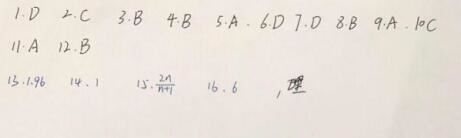 1.D 2.C 3.B 4.B 5.A. 6.D 7.D 8.B 9.A. 10C
11.A 12.B
13.1.96 14.1 15.$\frac{2n}{n+1}$ 16.6 ,理